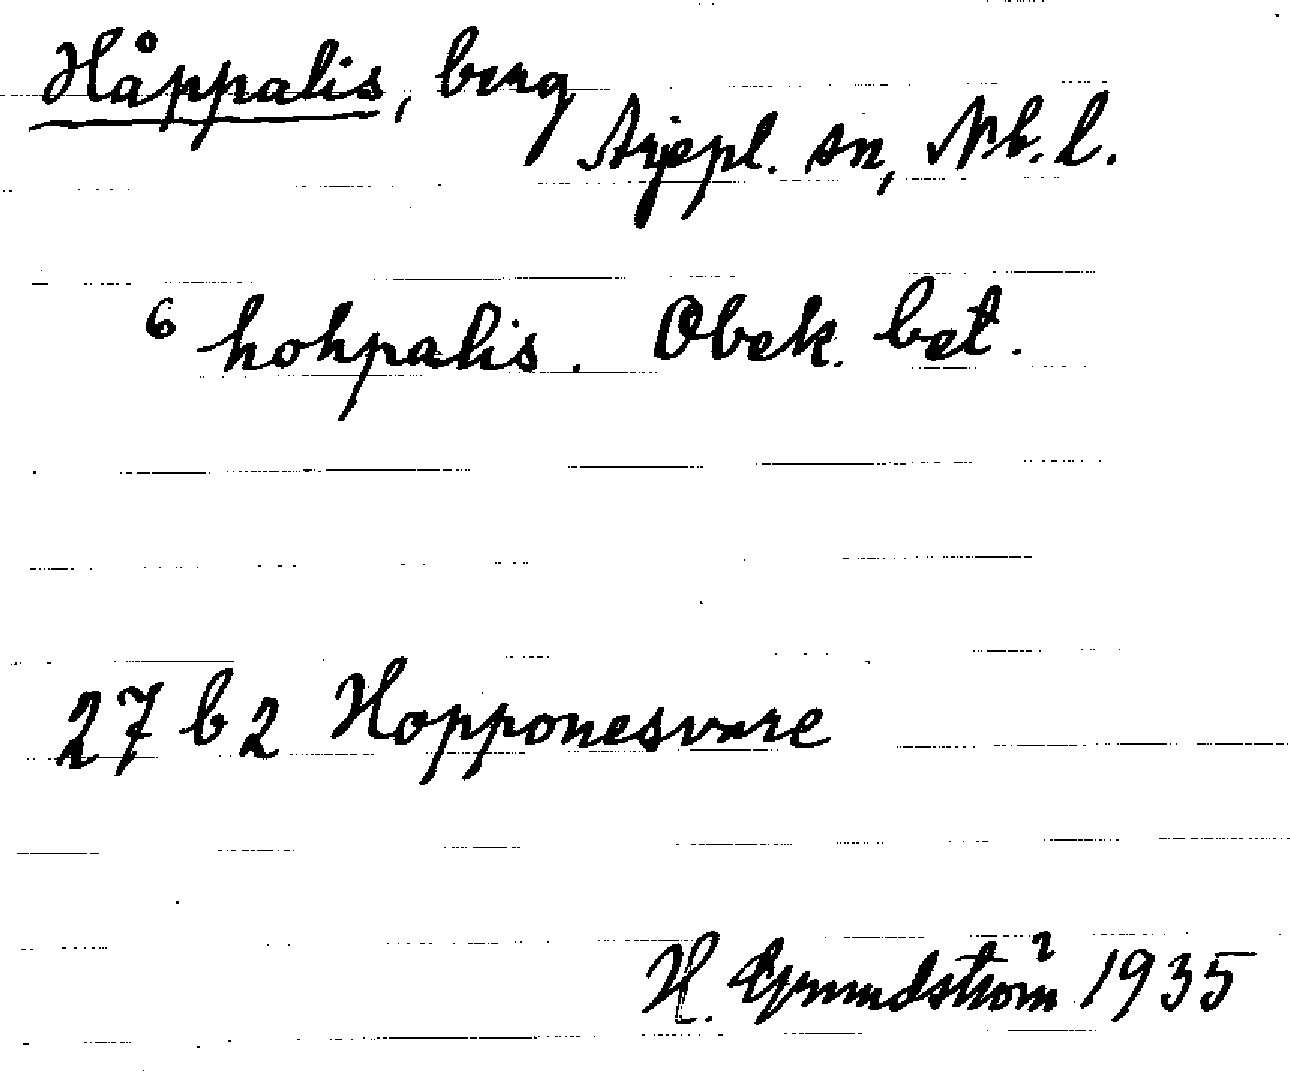 Håppalis, berg
Arjepl. sn, Nb. l.
6 hohpalis. Obek. bet.
27 b 2 Hopponesvare
H. Grundström 1935